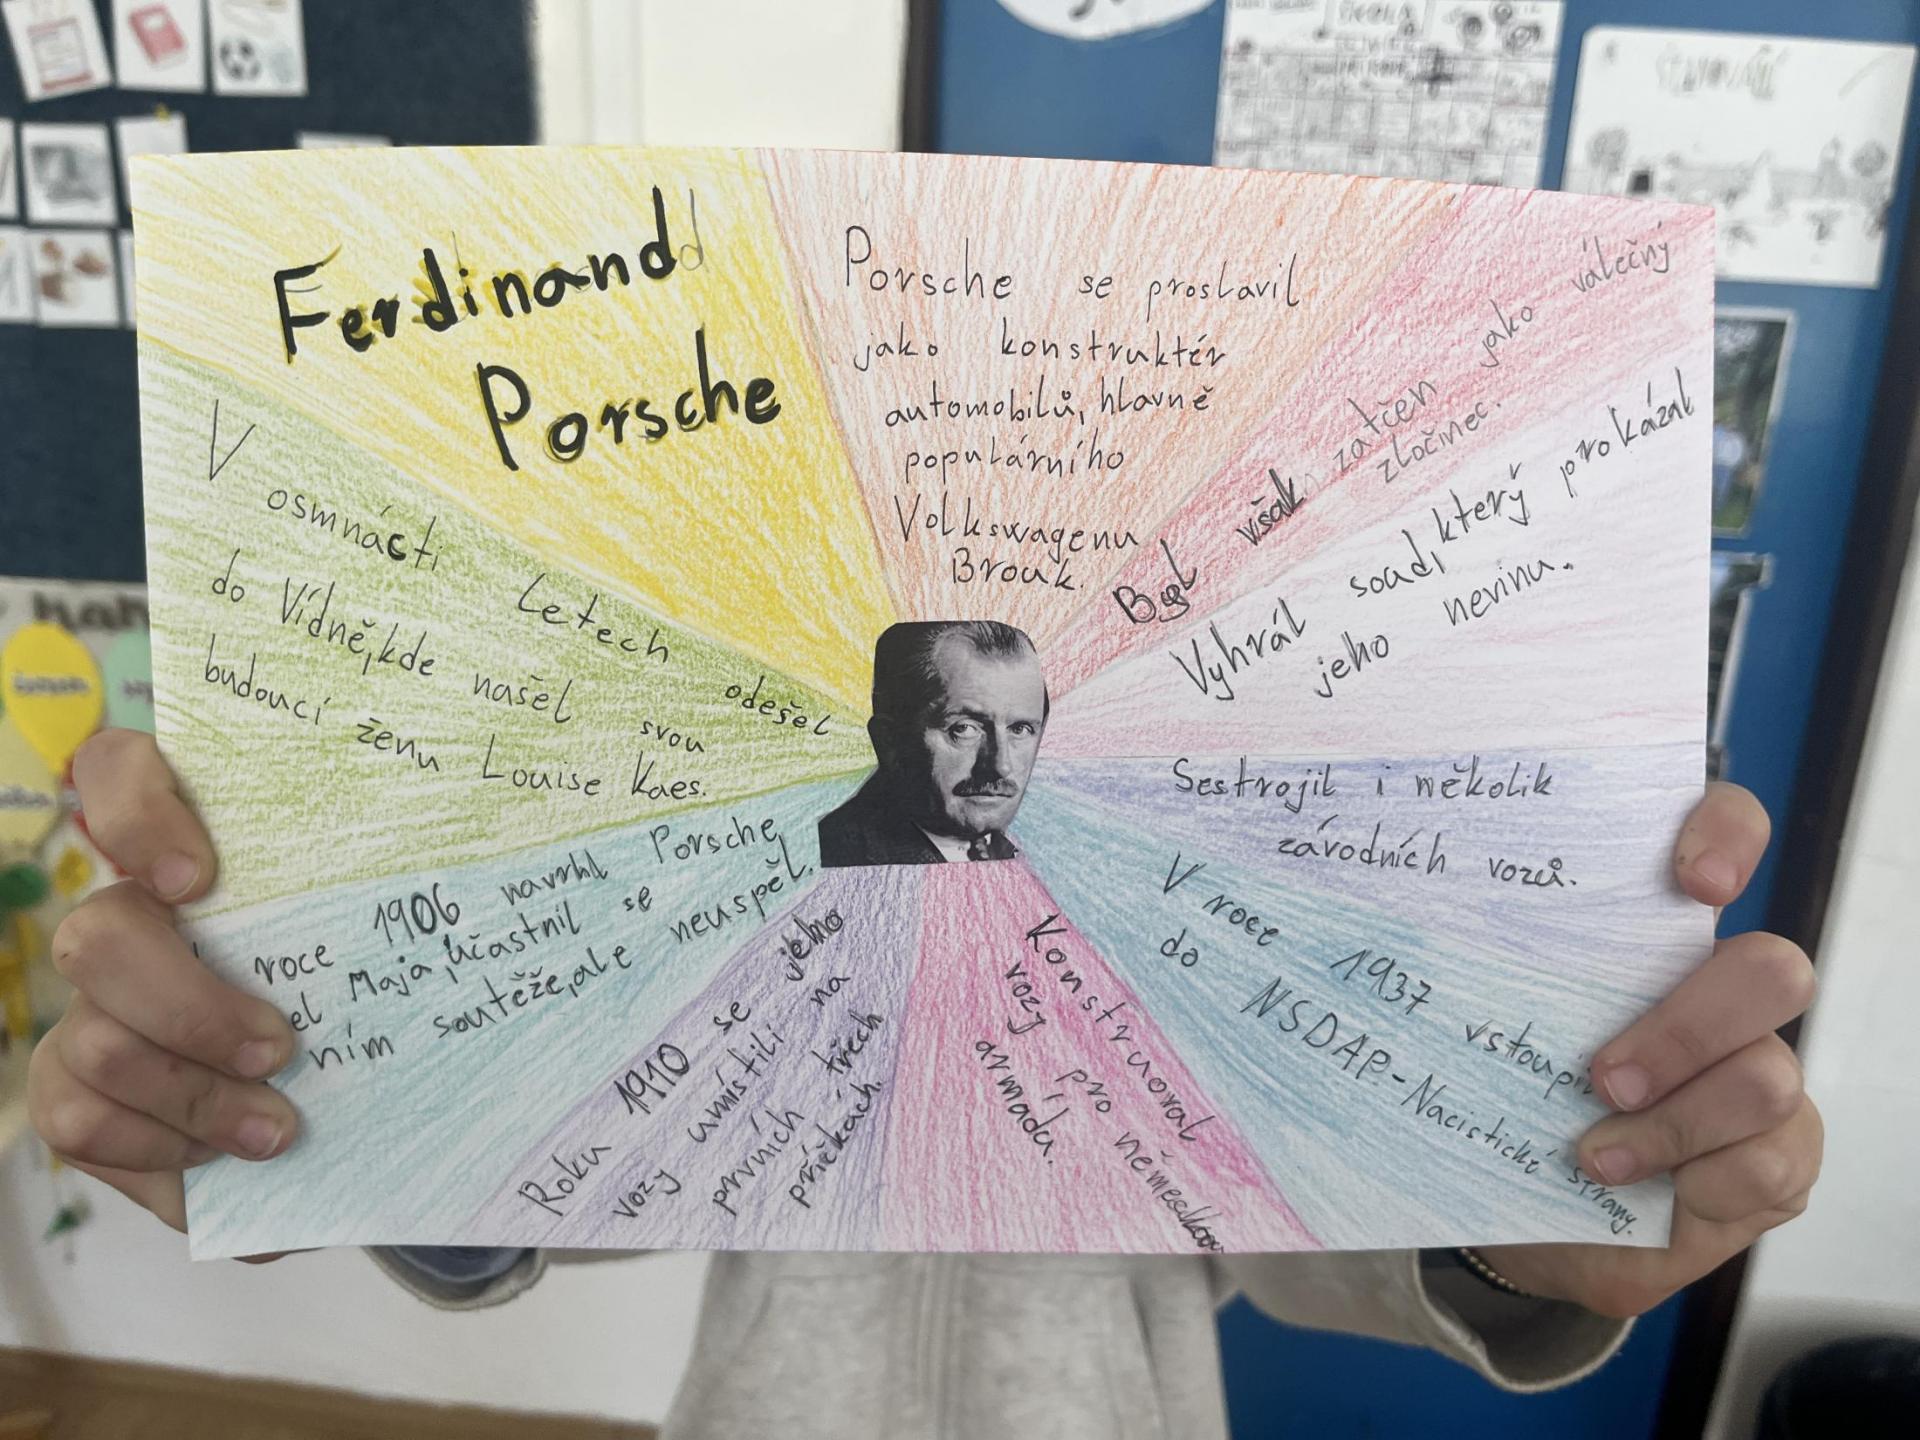 Ferdinand
Porsche
Porsche se proslavil
jako konstruktér
automobilů, hlavně
populárního
Volkswagenu
Brouk.
Byl však zatčen jako válečný
zločinec.
Vyhrál soud, který prokázal
jeho nevinu.
Sestrojil i několik
závodních vozů.
V roce 1937 vstoupil
do NSDAP-Nacistické strany.
Konstruoval
vozy pro německou
armádu.
Roku 1910 se jeho
vozy umístili na
prvních třech
příčkách.
roce 1906 navrhl Porsche
el Maja, účastnil se
ním soutěže, ale neuspěl.
V osmnácti letech odešel
do Vídně, kde našel svou
budoucí ženu Louise Kaes.